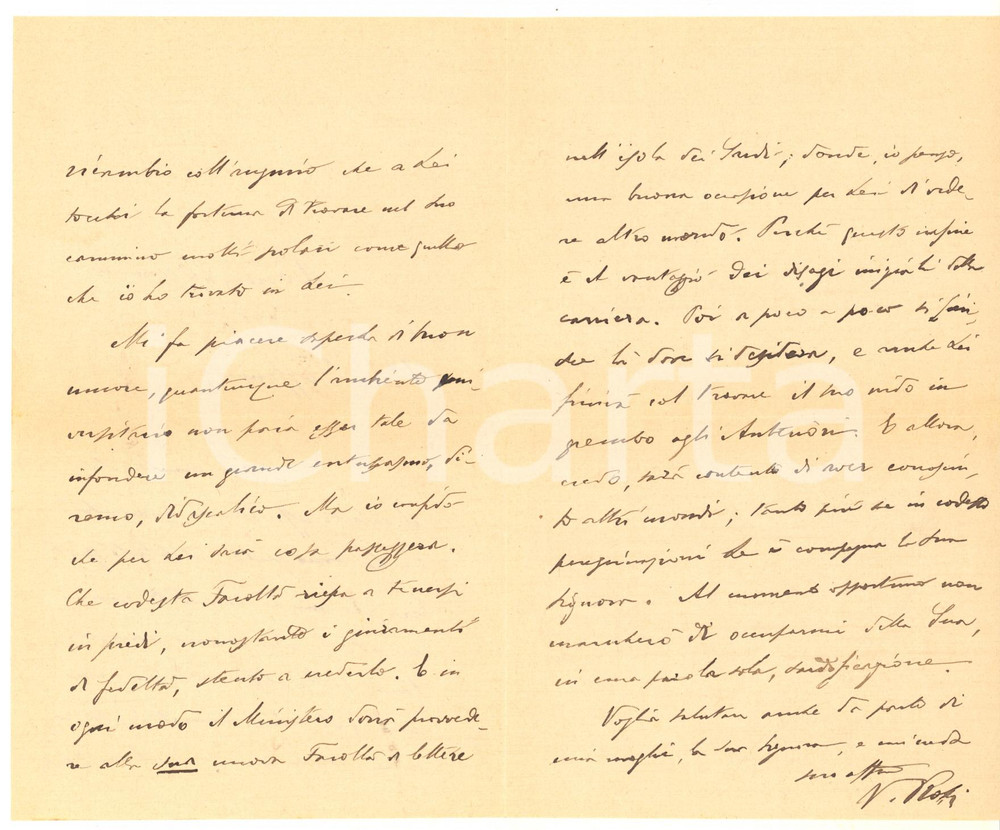 ricambio coll'augurio che a Lei
tocchi la fortuna di trovare nel suo
cammino molti scolari come quello
che io ho trovato in Lei.
Mi fa piacere saperla di buon
umore, quantunque l'ambiente uni-
versitario non possa esser tale da
infondere un grande entusiasmo, di-
remo, didascalico. Ma io confido
che per Lei sarà cosa passeggera.
Che codesta Facoltà riesca a tenersi
in piedi, nonostante i giuramenti
di fedeltà, stento a crederlo. E in
ogni modo il Ministero dovrà provvede-
re alla sua nuova Facoltà di lettere
nell'isola dei Sardi; donde, io penso,
una buona occasione per Lei di vede-
re altro mondo. Perchè questo infine
è il vantaggio dei disagi iniziali della
carriera. Poi a poco a poco si
là dove si desidera, e anche Lei
finirà col trovare il suo nido in
grembo agli Antenòri. E allora,
credo, sarà contento di aver conosciu-
to altri mondi; tanto più se in codeste
peregrinazioni Le è compagna la Sua
Signora. Al momento opportuno non
mancherò di occuparmi della Sua,
in una parola sola, sardificazione.
Voglia salutare anche da parte di
mia moglie, la Sua Signora, e mi creda
suo aff.mo
V. Rossi
iCharta